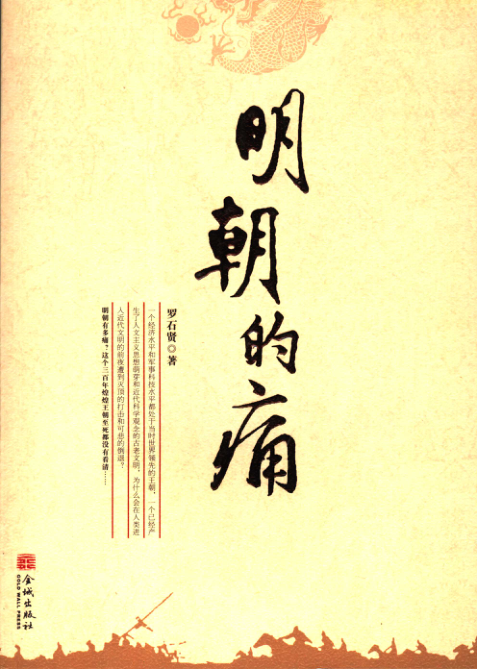 明朝的痛
罗石贤◎著
一个经济水平和军事科技水平都处于当时世界领先的王朝，一个已经产
生了人文主义思想萌芽和近代科学观念的古老文明，为什么会在人类进
入近代文明的前夜遭到灭顶的打击和可悲的倒退？
明朝有多痛？这个三百年煌煌王朝至死都没有看清……
金城出版社
GOLD WALL PRESS